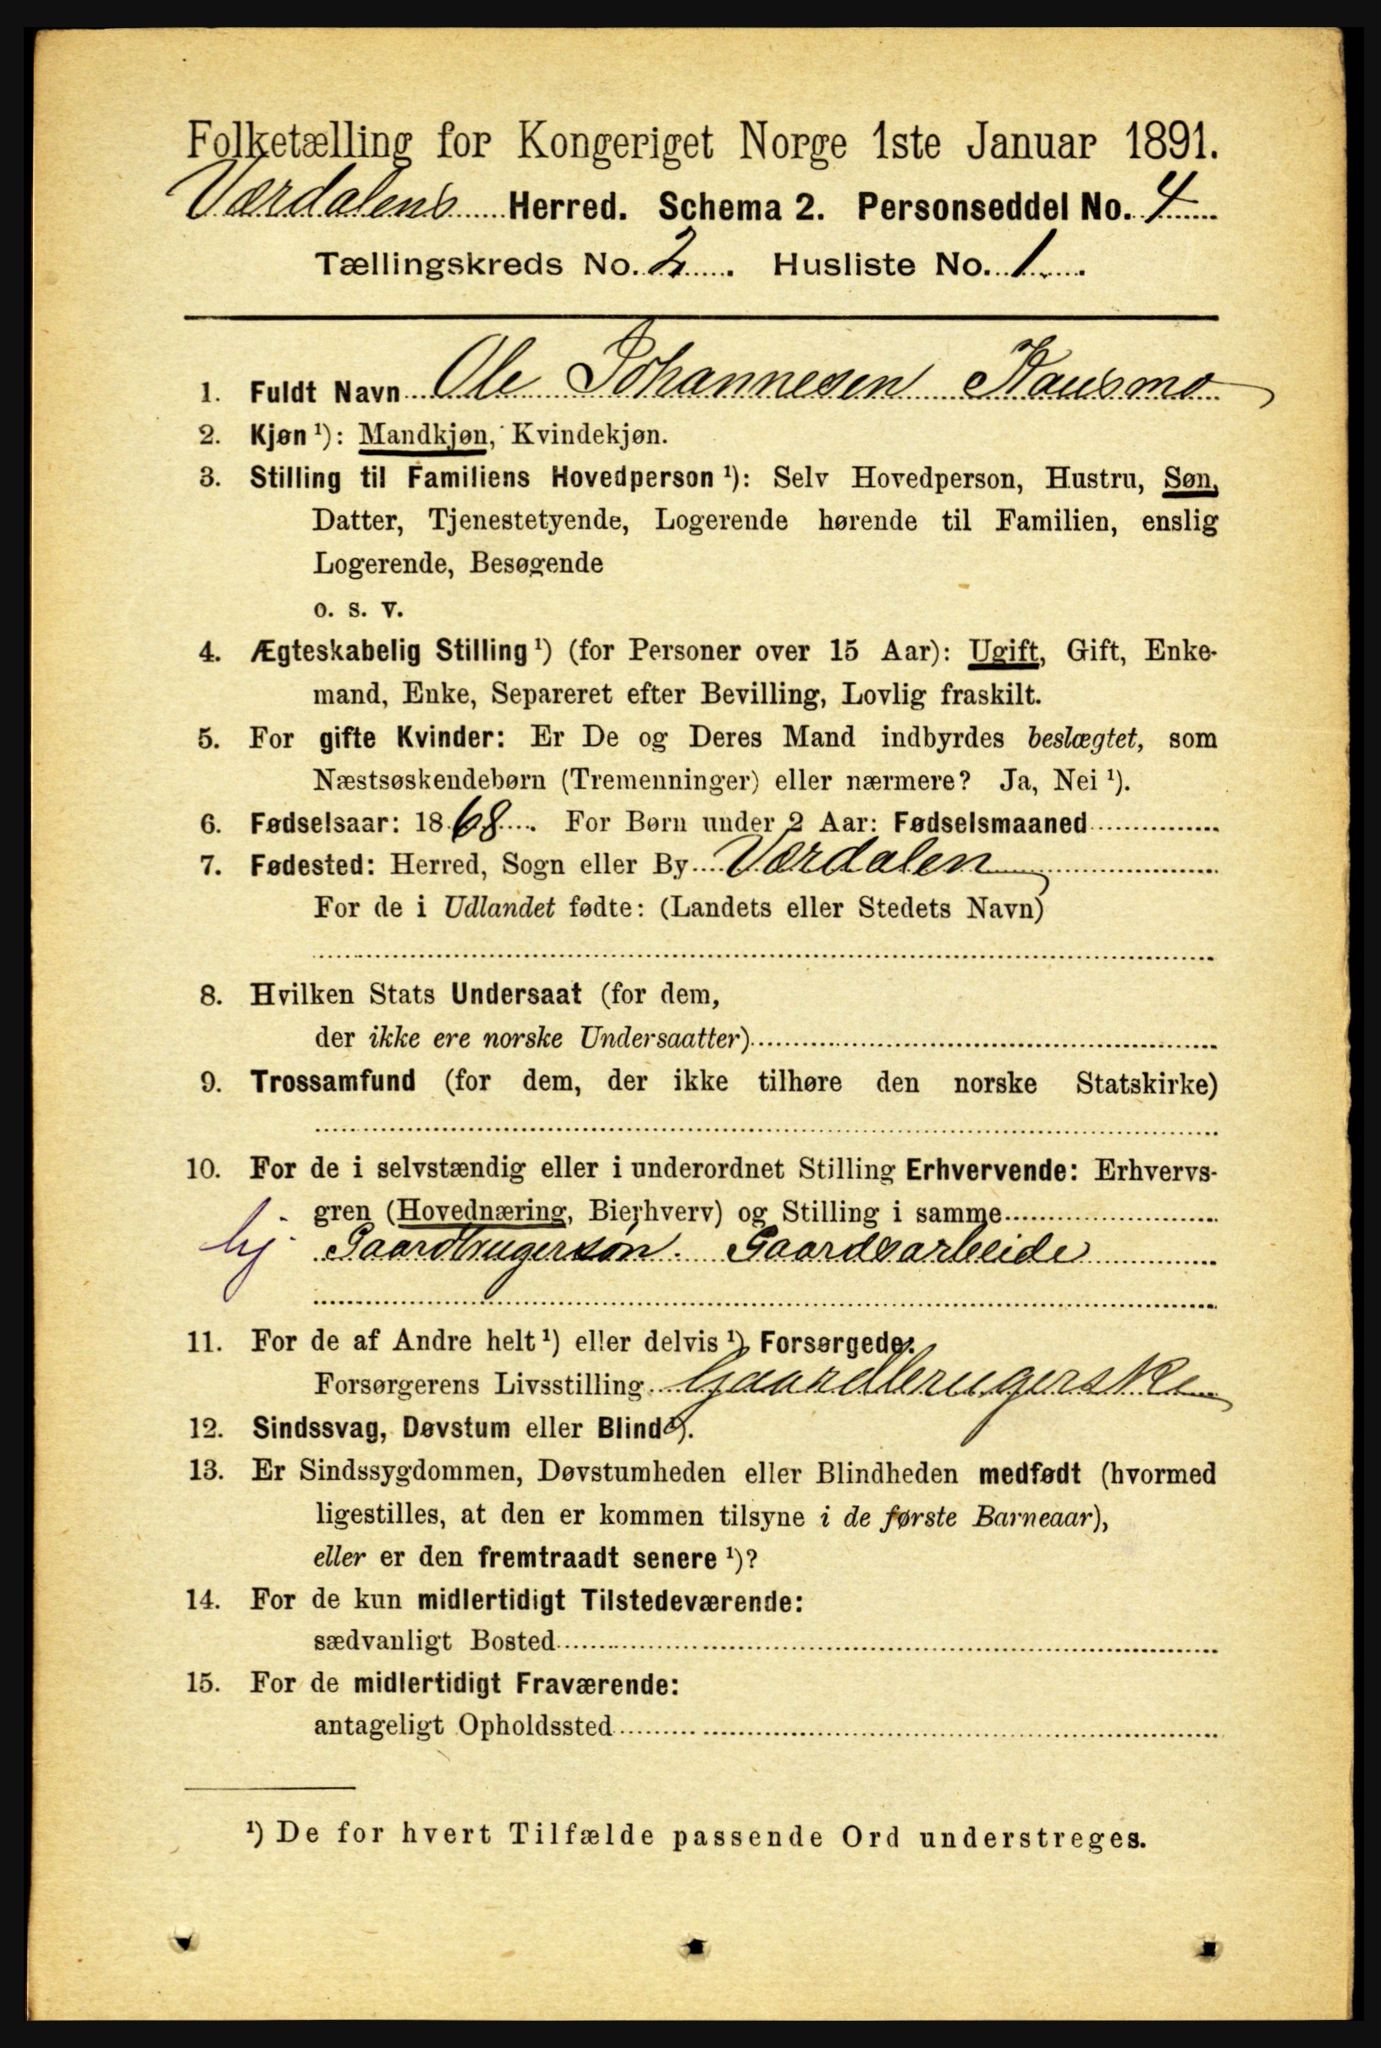 Folketælling for Kongeriget Norge 1ste Januar 1891.
Værdalens Herred. Schema 2. Personseddel No. 4
Tællingskreds No. 2. Husliste No. 1.
1. Fuldt Navn Ole Johannesen Hausmo
2. Kjøn ¹): Mandkjøn, Kvindekjøn.
3. Stilling til Familiens Hovedperson ¹): Selv Hovedperson, Hustru, Søn,
Datter, Tjenestetyende, Logerende hørende til Familien, enslig
Logerende, Besøgende
o. s. v.
4. Ægteskabelig Stilling ¹) (for Personer over 15 Aar): Ugift, Gift, Enke-
mand, Enke, Separeret efter Bevilling, Lovlig fraskilt.
5. For gifte Kvinder: Er De og Deres Mand indbyrdes beslægtet, som
Næstsøskendebørn (Tremenninger) eller nærmere? Ja, Nei ¹).
6. Fødselsaar: 1868. For Børn under 2 Aar: Fødselsmaaned
7. Fødested: Herred, Sogn eller By Værdalen
For de i Udlandet fødte: (Landets eller Stedets Navn)
8. Hvilken Stats Undersaat (for dem,
der ikke ere norske Undersaatter)
9. Trossamfund (for dem, der ikke tilhøre den norske Statskirke)
10. For de i selvstændig eller i underordnet Stilling Erhvervende: Erhvervs-
gren (Hovednæring, Bierhverv) og Stilling i samme
hj. Gaardbrugersøn. Gaardsarbeide
11. For de af Andre helt ¹) eller delvis ¹) Forsørgede:
Forsørgerens Livsstilling Gaardbrugerske
12. Sindssvag, Døvstum eller Blind ¹).
13. Er Sindssygdommen, Døvstumheden eller Blindheden medfødt (hvormed
ligestilles, at den er kommen tilsyne i de første Barneaar),
eller er den fremtraadt senere ¹)?
14. For de kun midlertidigt Tilstedeværende:
sædvanligt Bosted
15. For de midlertidigt Fraværende:
antageligt Opholdssted
¹) De for hvert Tilfælde passende Ord understreges.